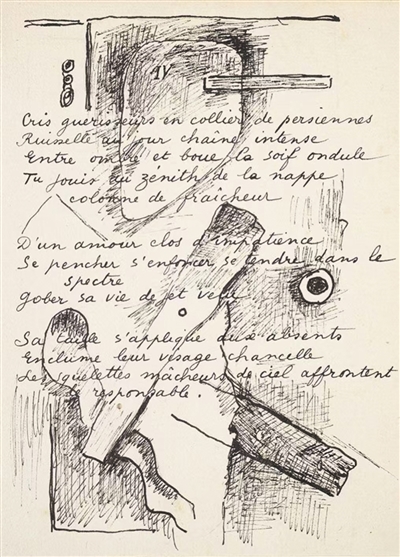 IV
Cris guérisseurs en collier de persiennes
Ruisselle au jour chaîne intense
Entre ombre et boue la soif ondule
Tu jouis au zénith de la nappe
colonne de fraîcheur
D'un amour clos d'impatience
Se pencher s'enfoncer se tendre dans le
spectre
Gober sa vie de jet
Sa taille s'applique aux absents
Enclume leur visage chancelle
Les squelettes mâcheurs de ciel affrontent
le responsable.